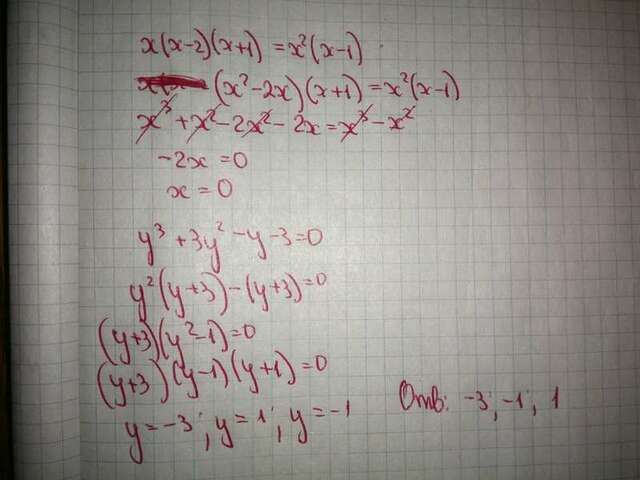 x(x-2)(x+1) = x²(x-1)
(x²-2x)(x+1)=x²(x-1)
x³+x²-2x²-2x=x³-x²
-2x=0
x=0
y³+3y²-y-3=0
y²(y+3)-(y+3)=0
(y+3)(y²-1)=0
(y+3)(y-1)(y+1)=0
y=-3; y=1; y=-1 Отв: -3; -1; 1